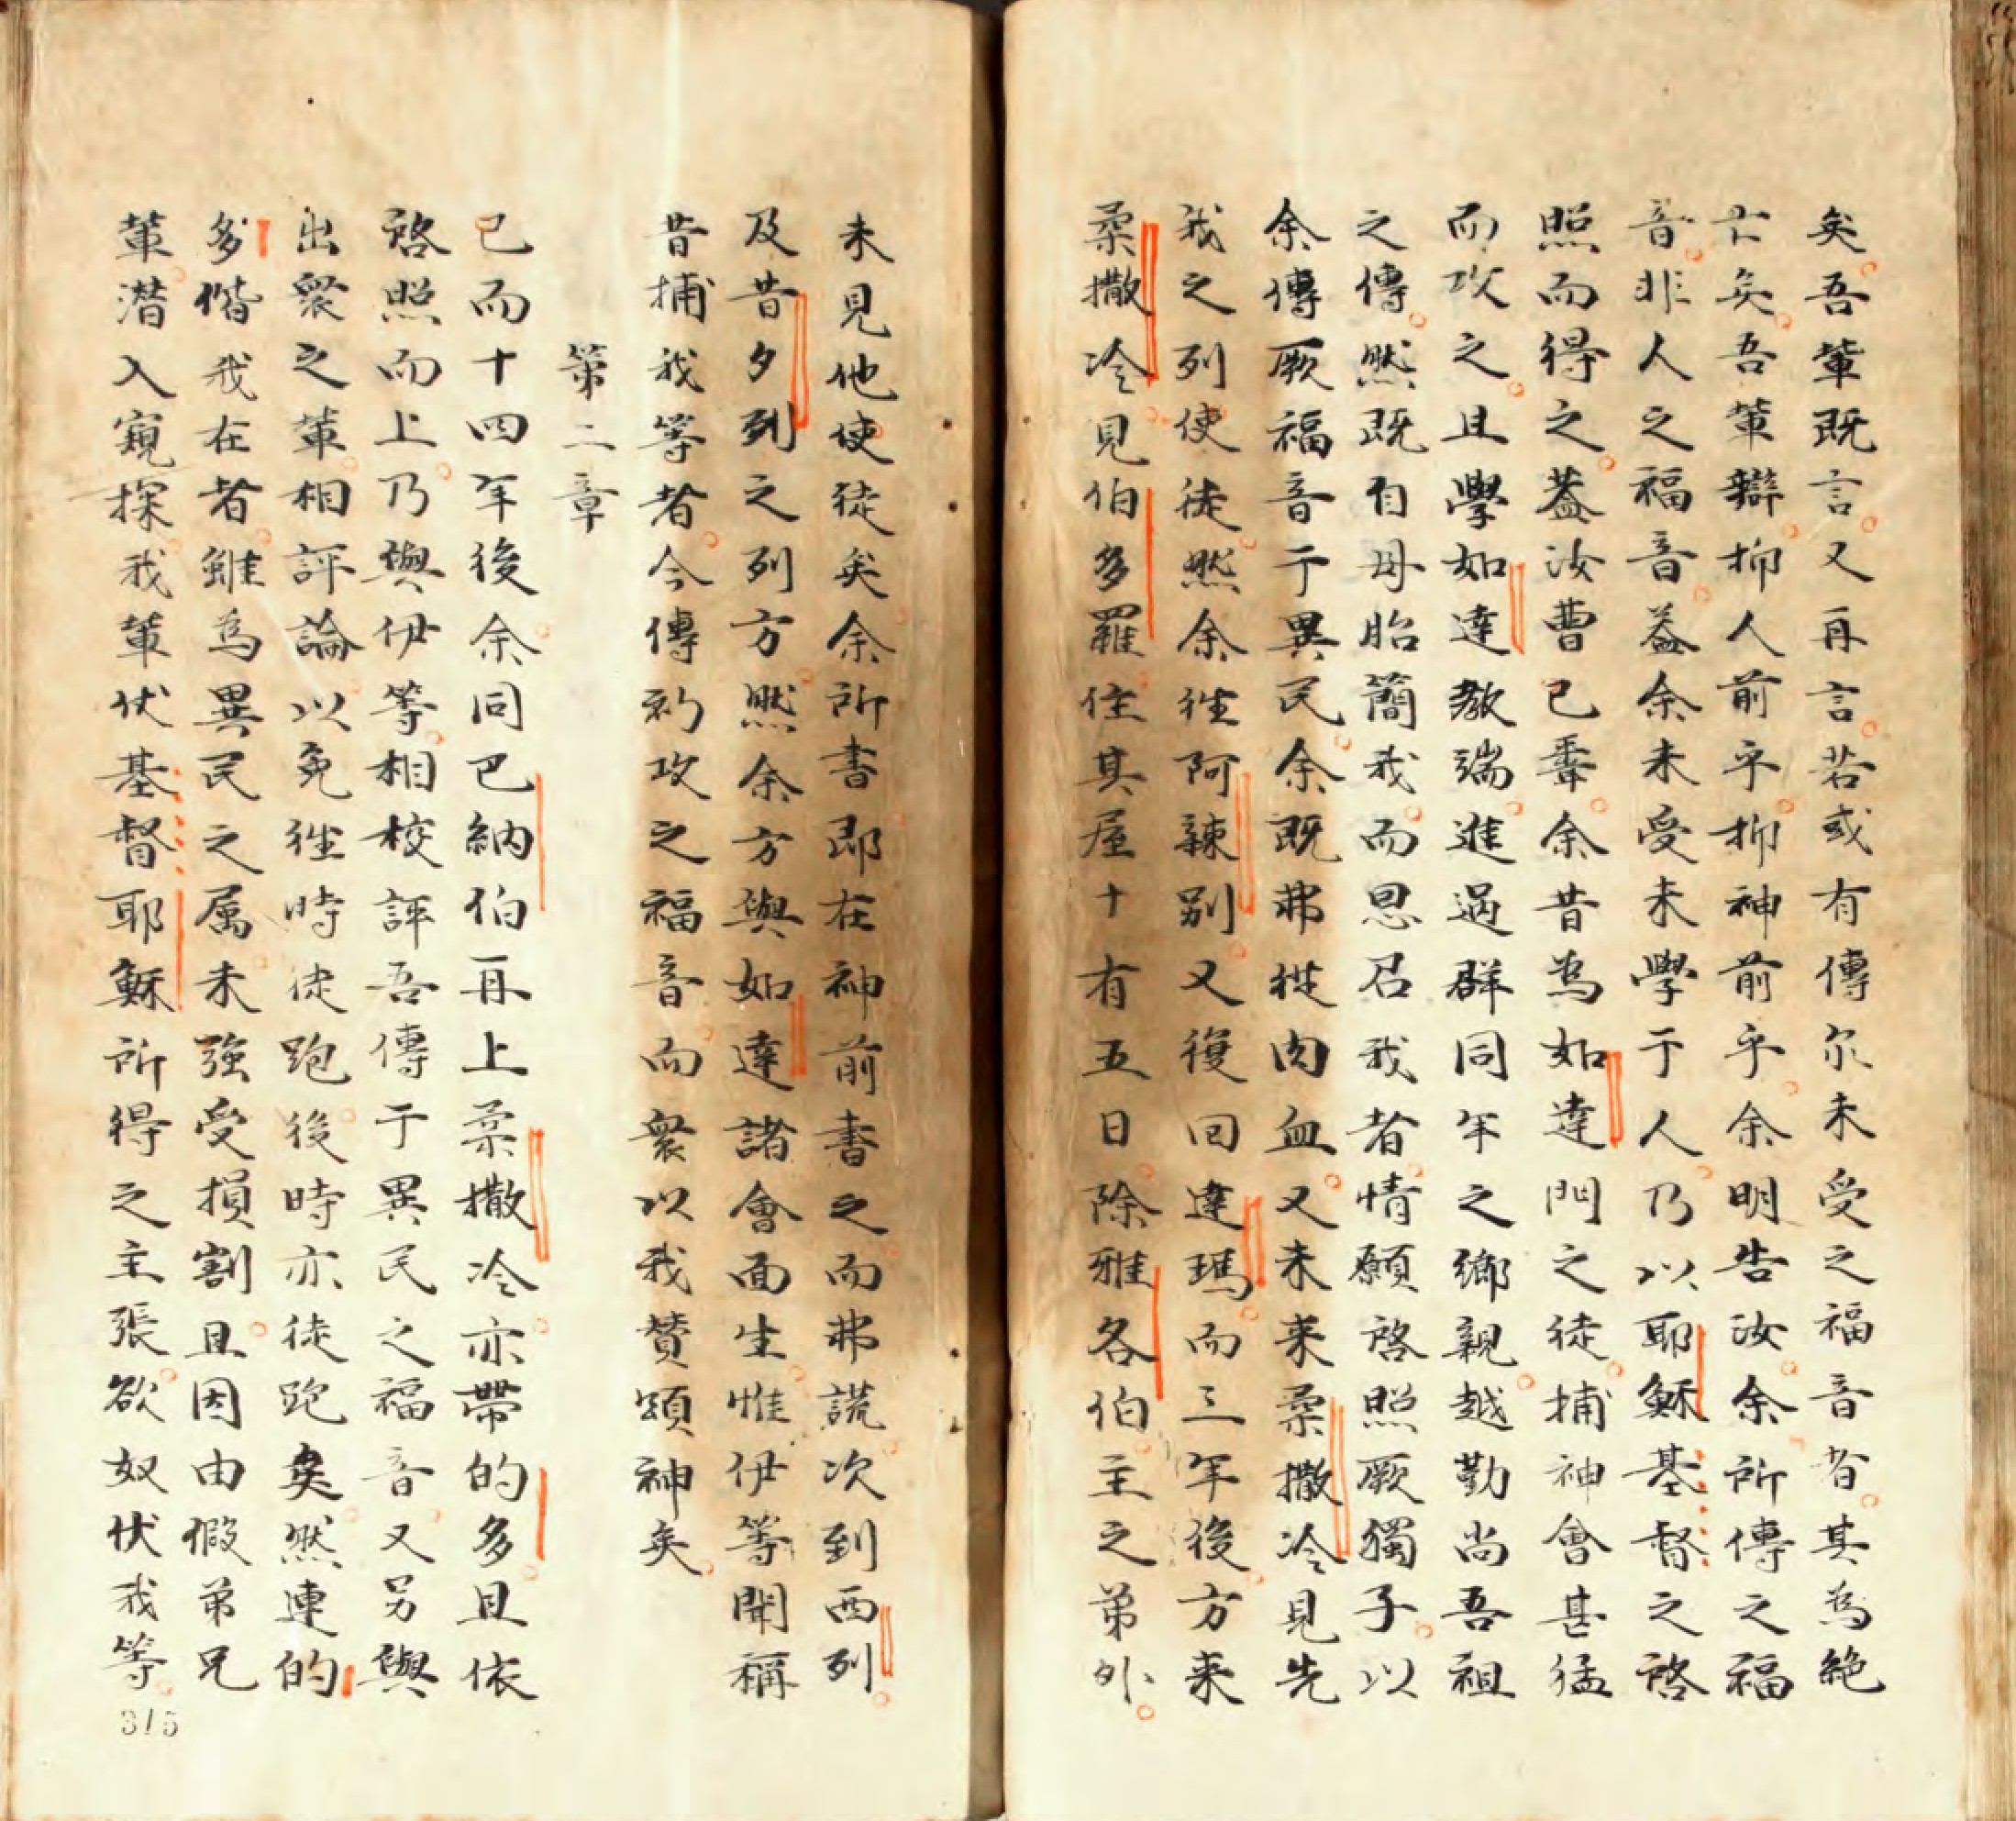 矣吾輩既言又再言若或有傳尓未受之福音者其為絶
亡矣吾輩辯抑人前乎抑神前乎余明告汝余所傳之福
音非人之福音葢余未受未學于人乃以耶穌基督之啓
照而得之葢汝曹已聞余昔為如達門之徒捕神會甚猛
而攻之且學如達教端進過群同年之鄉親越勤尚吾祖
之傳然既自母胎簡我而恩召我者情願啓照厥獨子以
余傳厥福音于異民余既弗從肉血又未来柔撒冷見先
我之列使徒然余徃阿辣别又復回達瑪而三年後方来
柔撒冷見伯多羅住其屋十有五日除雅各伯主之弟外
未見他使徒矣余所書即在神前書之而弗謊次到西列
及昔夕列之列方然余方與如達諸會面生惟伊等聞稱
昔捕我等者今傳初攻之福音而衆以我賛頌神矣
第二章
已而十四年後余同巴納伯再上柔撒冷亦帶的多且依
啓照而上乃與伊等相校評吾傳于異民之福音又另與
出衆之輩相評論以免徃時徒跑後時亦徒跑矣然連的
多偕我在者雖為異民之属未強受損割且因由假弟兄
輩潜入窺探我輩伏基督耶穌所得之主張欲奴伏我等
315